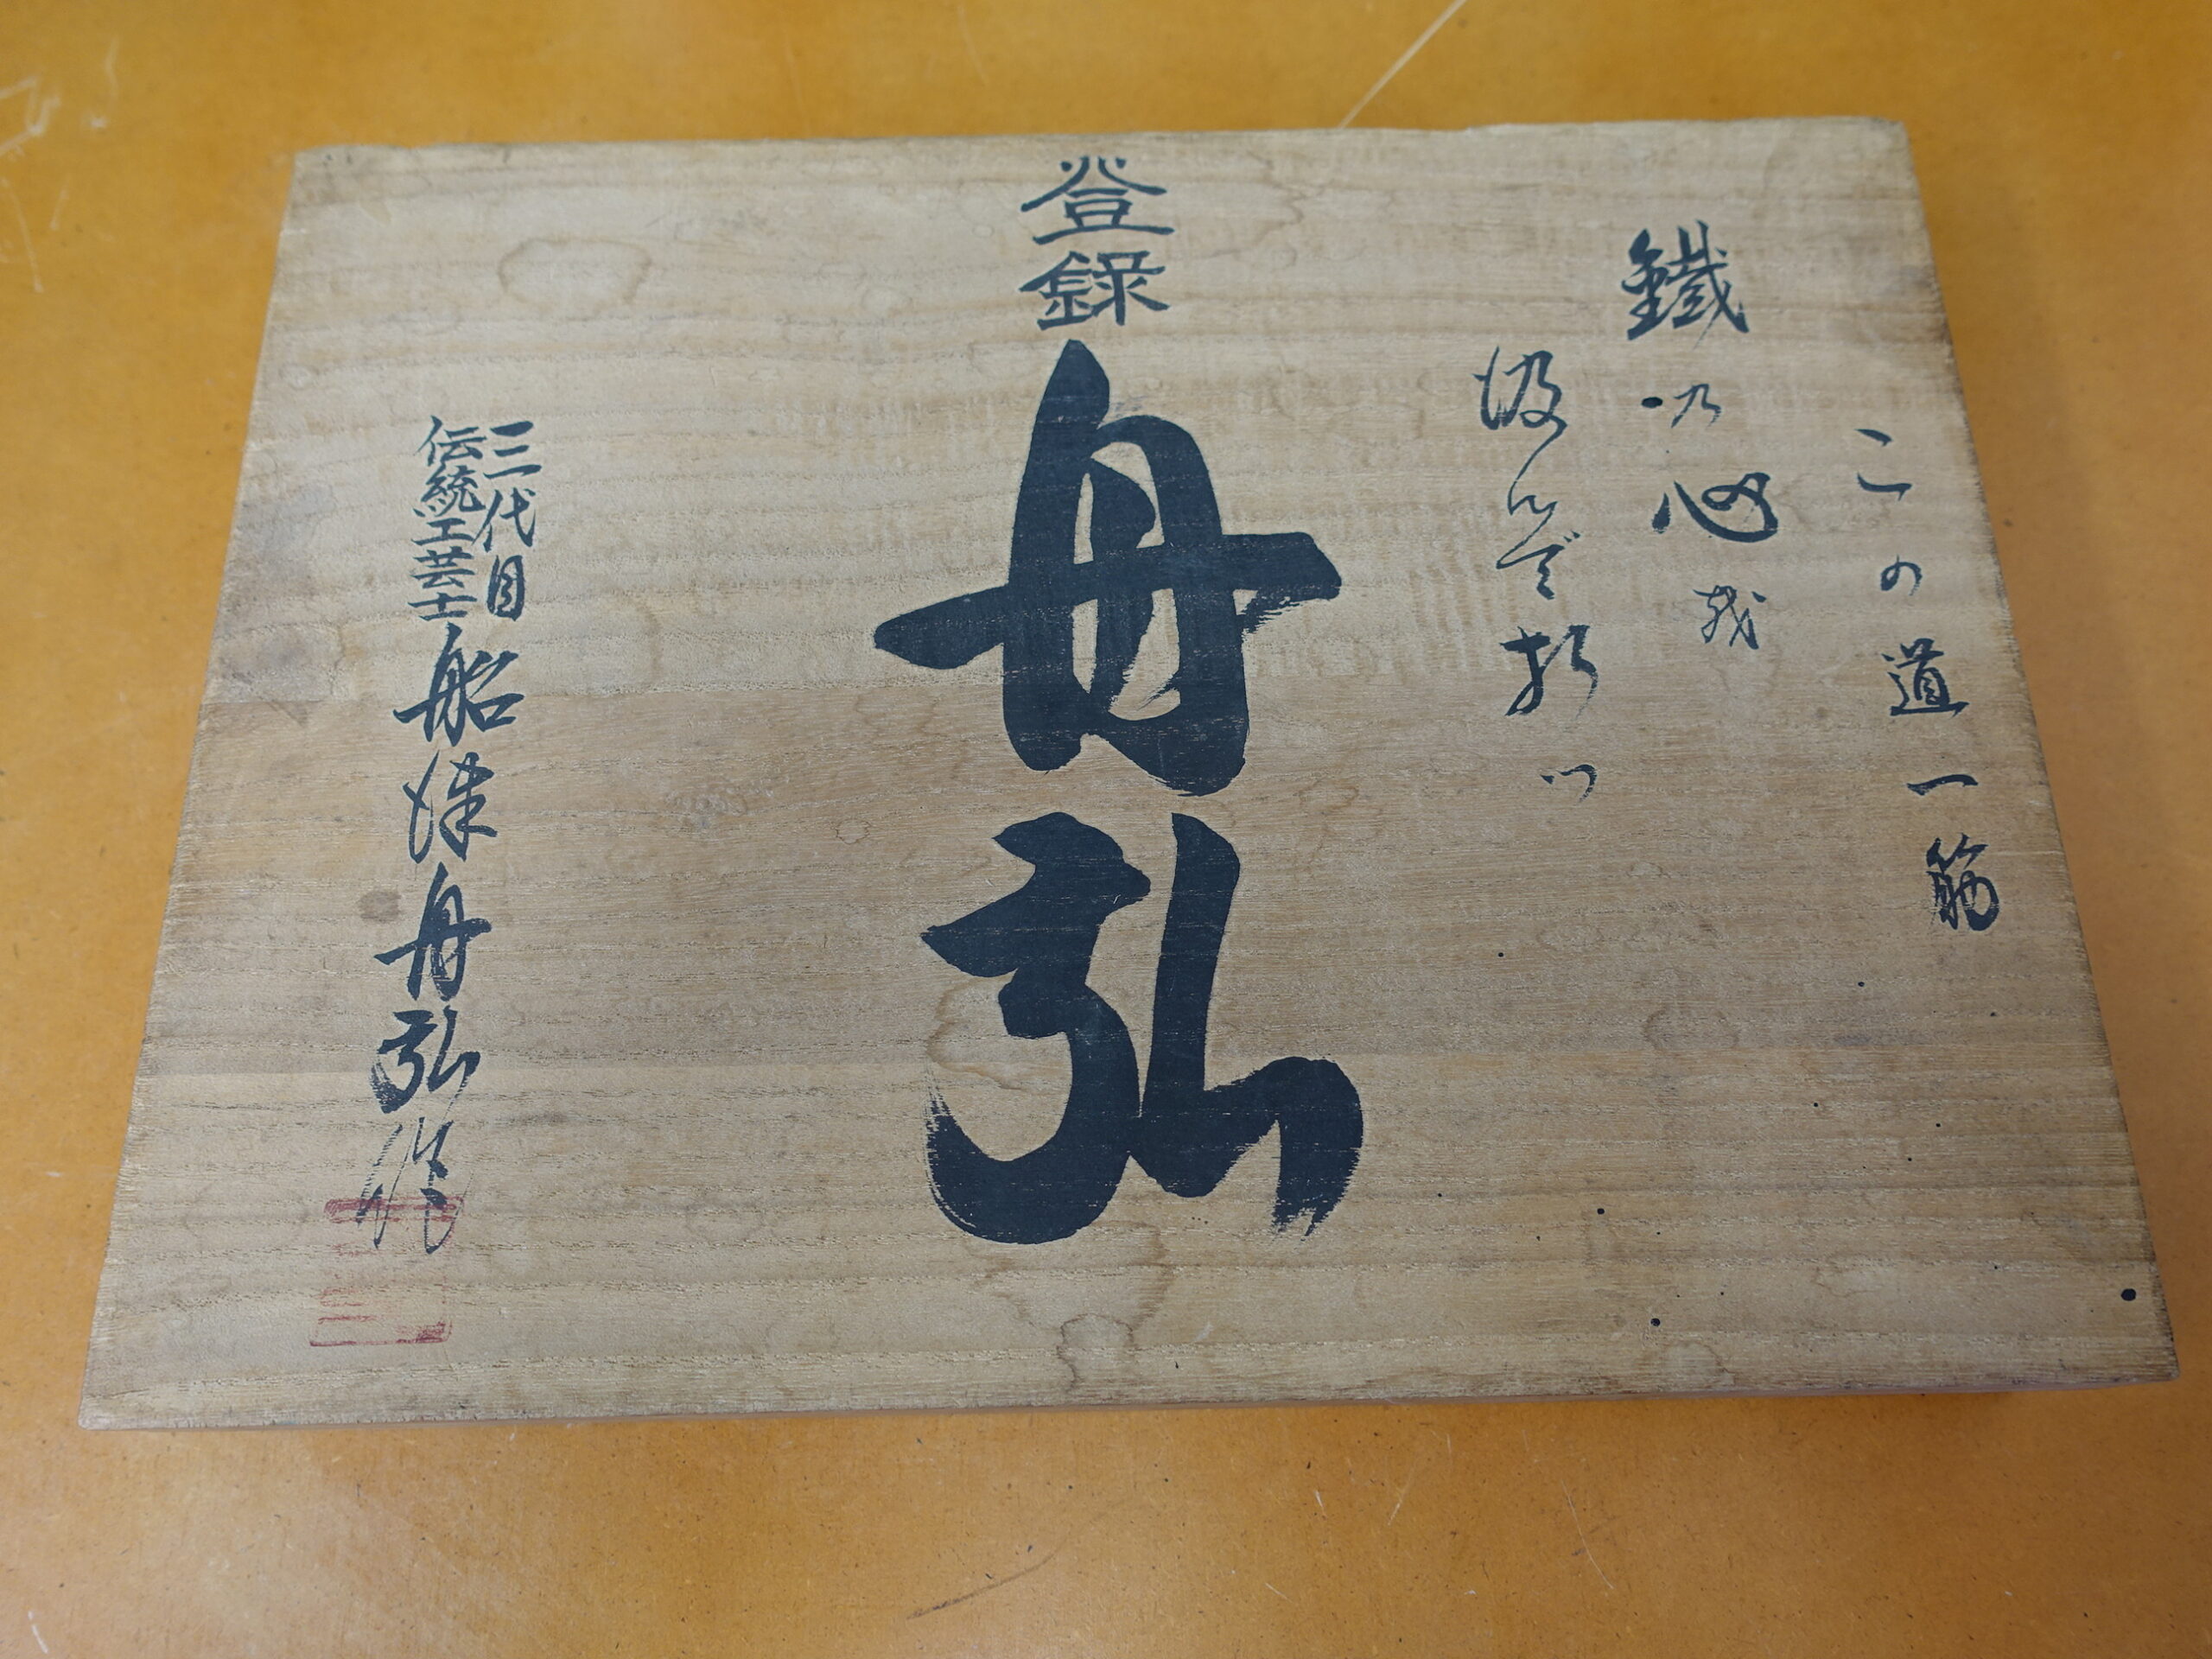 この道一筋
鐵乃心を
汲んで打つ
登録
舟弘
三代目
伝統工芸士
船津舟弘作